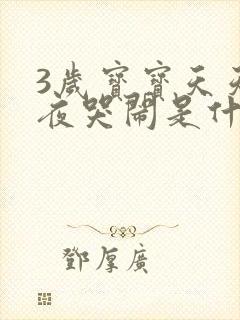 3歲寶寶天天
夜哭鬧是什
鄧厚廣